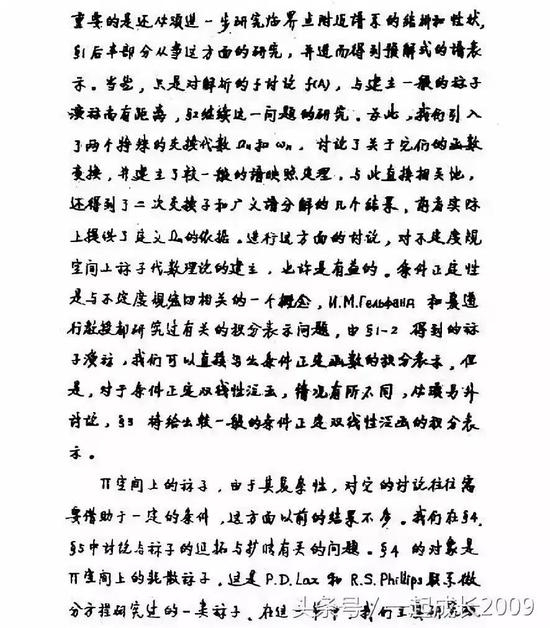 重要的是还必须进一步研究临界点附近谱系的结构和性状,
§1后半部分从事这方面的研究,并进而得到预解式的谱表
示。当然,只是对解析的f讨论f(A),与建立一般的算子
演算尚有距离,§2继续这一问题的研究。为此,我们引入
了两个特殊的交换代数Ωn和ωn,讨论了关于它们的函数
变换,并建立了较一般的谱映照定理,与此直接相关地,
还得到了二次交换子和广义谱分解的几个结果,前者实际
上提供了定义Ωn的依据。进行这方面的讨论,对不定度规
空间上算子代数理论的建立,也许是有益的。条件正定性
是与不定度规密切相关的一个概念,И.М.Гельфанд 和夏道
行教授都研究过有关的积分表示问题,由§1-2得到的算
子演算,我们可以直接写出条件正定函数的积分表示。但
是,对于条件正定双线性泛函,情况有所不同,必须另外
讨论,§3 将给出较一般的条件正定双线性泛函的积分表
示。
Π空间上的算子,由于其复杂性,对它的讨论往往需
要借助于一定的条件,这方面以前的结果不多。我们在§4,
§5中讨论与算子的延拓与扩张有关的问题。§4 的对象是
Π空间上的耗散算子,这是P.D.Lax 和 R.S.Phillips联系微
分方程研究过的一类算子。在这一
头条号/一起成长2009